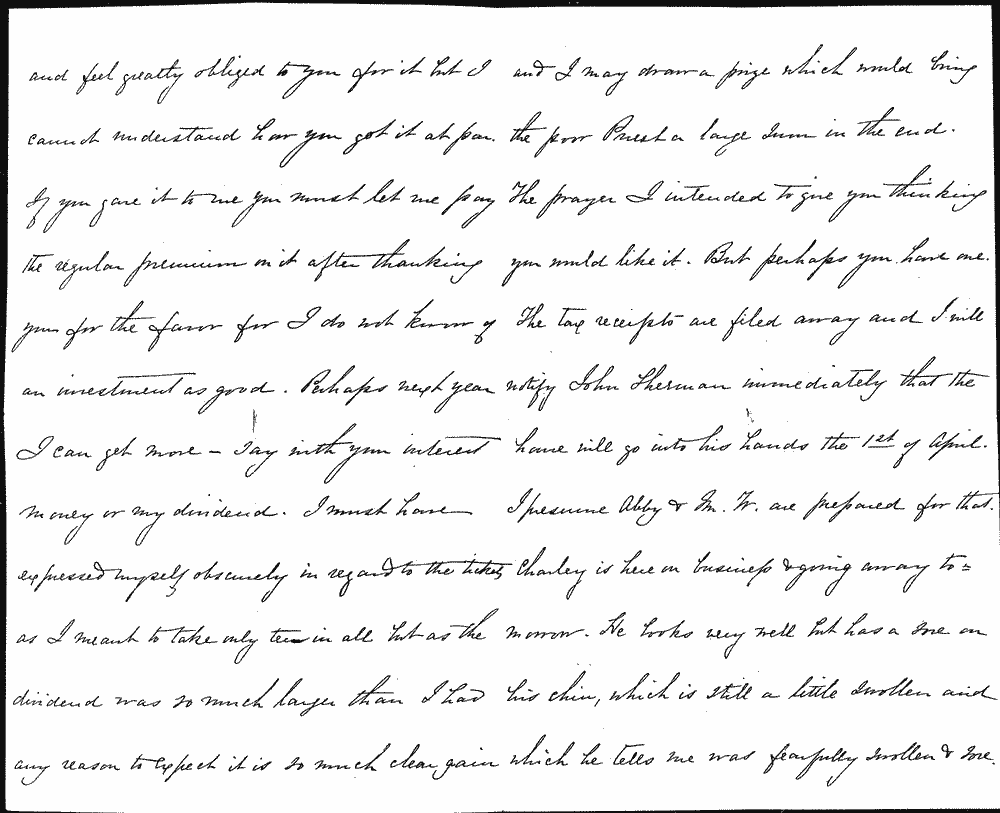 and feel greatly obliged to you for it but I
cannot understand how you got it at par.
If you gave it to me you must let me pay
the regular premium on it after thanking
you for the favor for I do not know of
an investment as good. Perhaps next year
I can get more – say with your interest
money or my dividend. I must have
expressed myself obscurely in regard to the tickets
as I meant to take only ten in all but as the
dividend was so much larger than I had
any reason to expect it is so much clear gain
and I may draw a prize which would bring
the poor Priest a large sum in the end.
The prayer I intended to give you thinking
you would like it. But perhaps you have one.
The tax receipts are filed away and I will
notify John Sherman immediately that the
house will go into his hands the 1st of April.
I presume Abby & M. W. are prepared for that.
Charley is here on business & going away to=
morrow. He looks very well but has a sore on
his chin, which is still a little swollen and
which he tells me was fearfully swollen & sore.